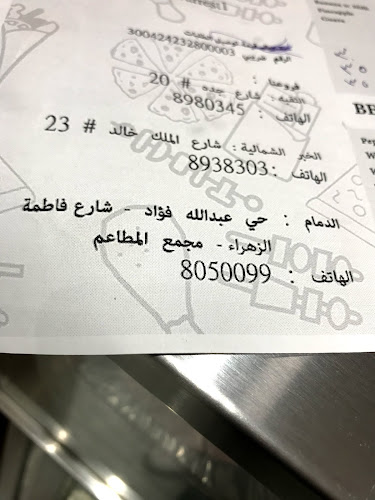 300424232800003
الرقم ضريبي
فروعنا :
الثقبة : شارع جده # 20
الهاتف : 8980345
الخبر الشمالية : شارع الملك خالد # 23
الهاتف : 8938303
الدمام : حي عبدالله فؤاد - شارع فاطمة
الزهراء - مجمع المطاعم
الهاتف : 8050099